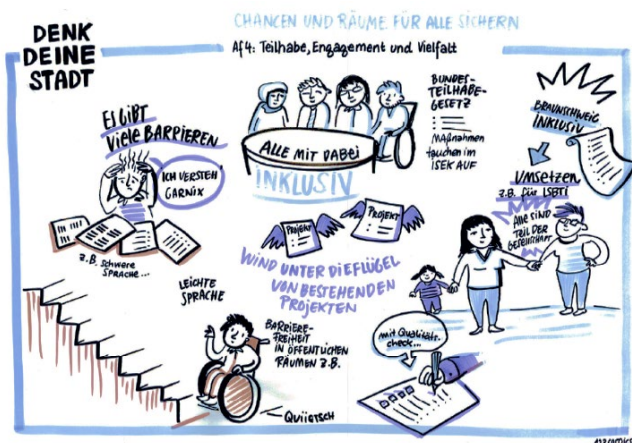 DENK
DEINE
STADT
CHANCEN UND RÄUME FÜR ALLE SICHERN
Af4: Teilhabe, Engagement und Vielfalt
ES GIBT
VIELE BARRIEREN
ICH VERSTEH
GARNIX
z.B. SCHWERE
SPRACHE...
ALLE MIT DABEI
INKLUSIV
BUNDES-
TEILHABE-
GESETZ
MAßNAHMEN
tauchen im
ISEK AUF
BRAUNSCHWEIG
INKLUSIV
UMSETZEN
z.B. für LSBTI
Alle SIND
TEIL DER
GESELLSCHAFT
PROJEKT
PROJEKT
WIND UNTER DIE FLÜGEL
VON BESTEHENDEN
PROJEKTEN
LEICHTE
SPRACHE
BARRIERE-
FREIHEIT
IN ÖFFENTLICHEN
RÄUMEN Z.B.
QUIIETSCH
mit Qualitäts-
check...
123COMICS